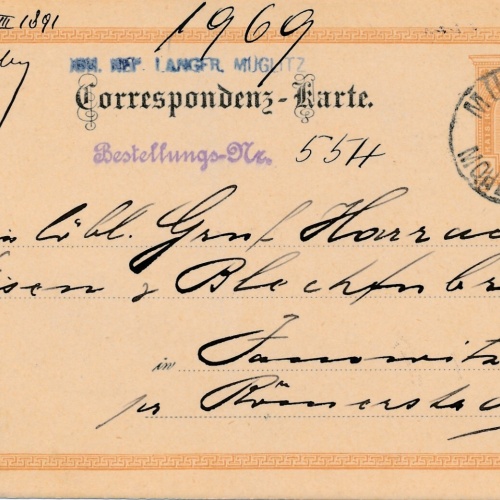 III 1891
1969
JOH. NEP. LANGER, MÜGLITZ
Correspondenz-Karte.
Bestellungs-Nr. 554
löbl. Graf Harrac
isen & Blechfabr
in Janowitz
pr Römerstadt